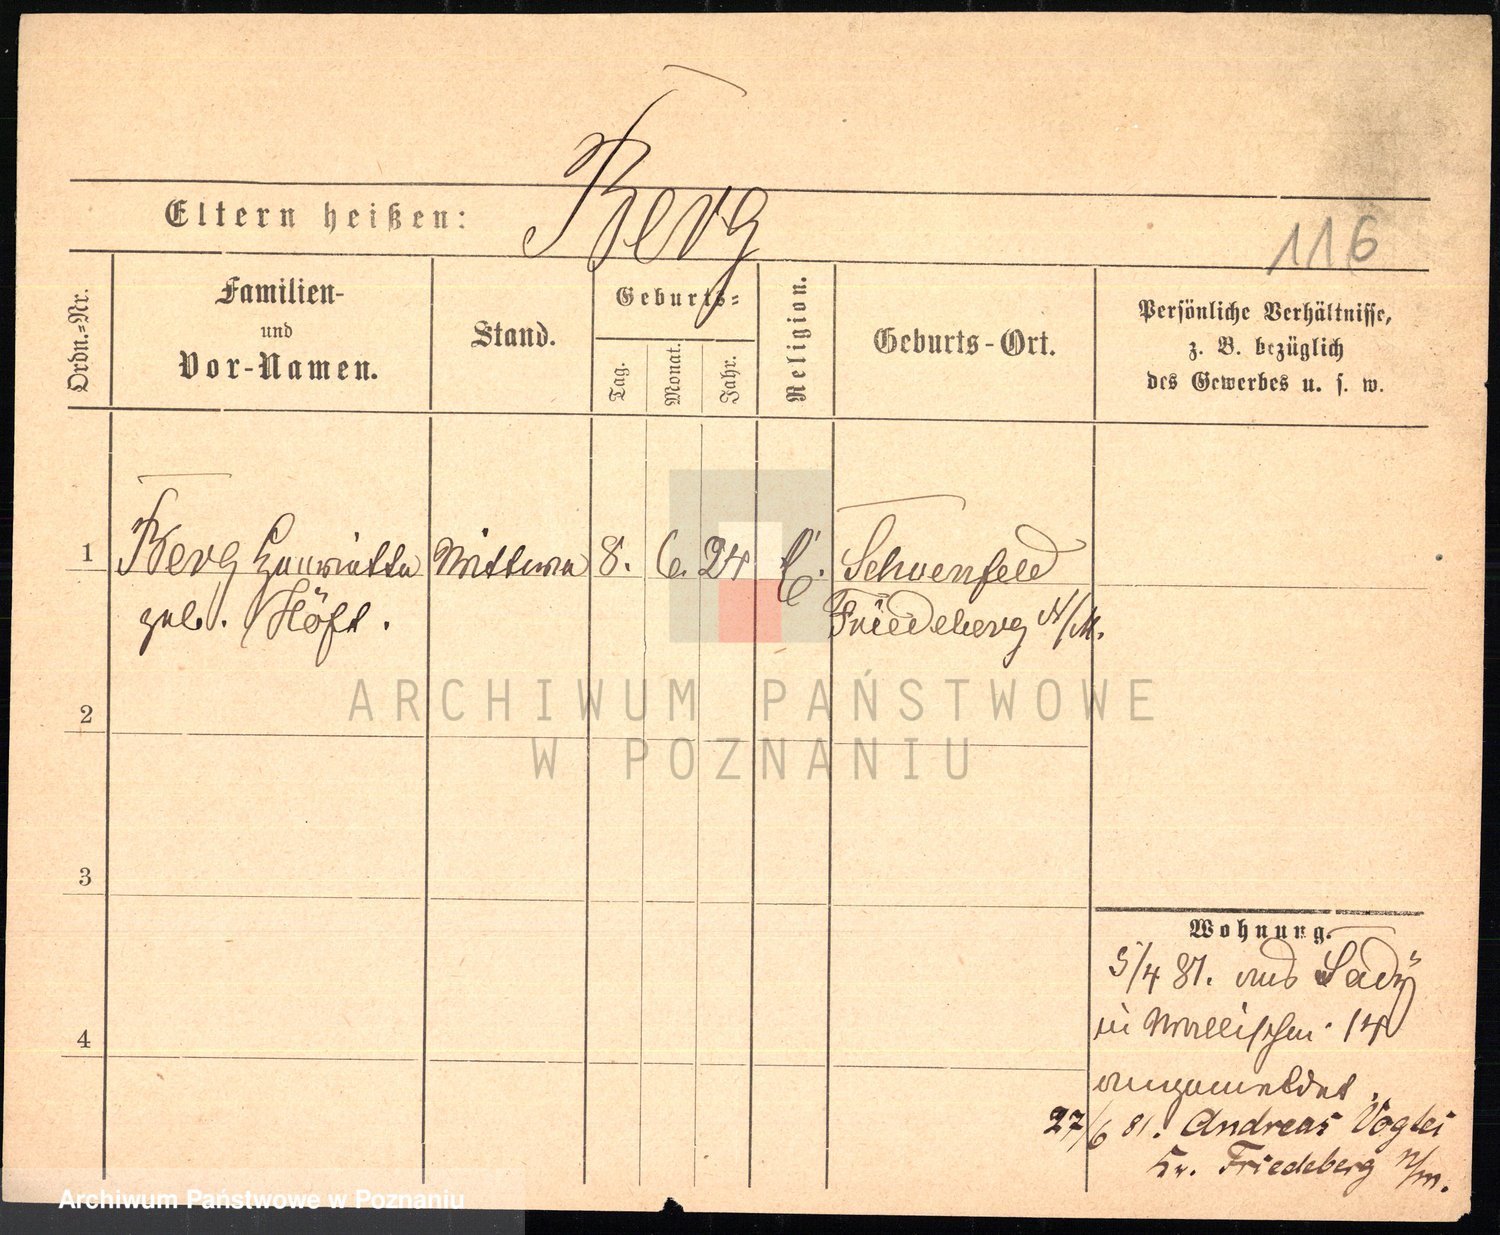 Berg
Eltern heißen:
116
Ordn.=Nr.
Familien-
und
Vor-Namen.
Stand.
Geburts=
Tag.
Monat.
Jahr.
Religion.
Geburts-Ort.
Persönliche Verhältnisse,
z. B. bezüglich
des Gewerbes u. s. w.
1
Berg Henriette
geb. Höft.
Wittwe
8.
6.
24
Schoenfeld
Friedeberg N/M.
2
3
4
Wohnung.
5/4 81. aus
in Wallischei 14
angemeldet.
27/6 81. Andreas Vogtei
Kr. Friedeberg N/M.
ARCHIWUM PAŃSTWOWE
W POZNANIU
Archiwum Państwowe w Poznaniu